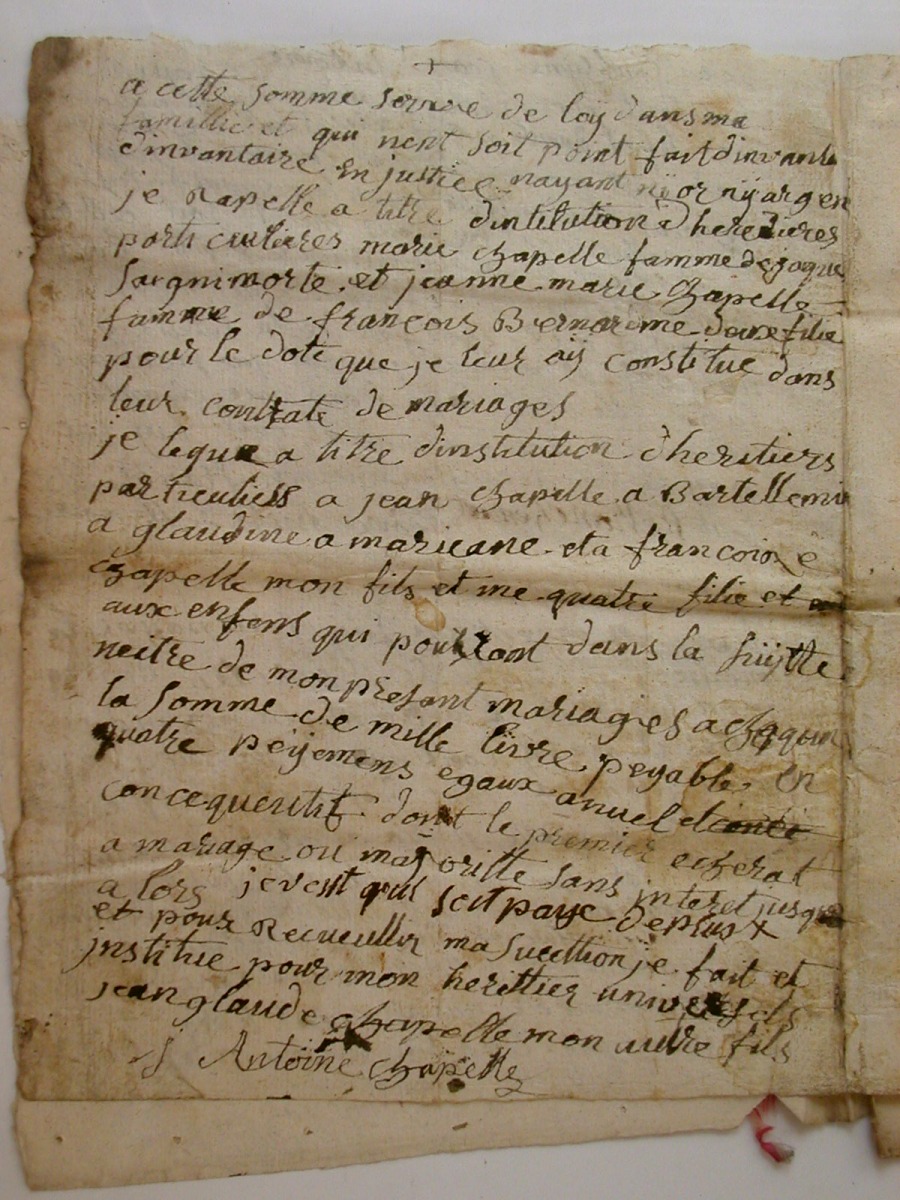 a cette somme serve de loy dans ma
famillie et qui nent soit point fait dinvante
dinvantaire en justice nayant ny or ny argen
je Rapelle a titre dintitution dheredieres
particulieres marie chapelle famme de jaque
Sargnimorte et jeanne marie chapelle
famme de françois Bernar me deux filie
pour le dote que je leur aÿ constitue dans
leur contrate de mariages
je legue a titre dinstitution dheritiers
particuliess a jean chapelle a Bartellemie
a glaudine a marieane et a francoixe
chapelle mon fils et me quatre filie et
aux enfans qui pourront dans la suÿtte
neitre de mon presant mariages a chaqun
la somme de mille livre peyable en
quatre peÿjemens egaux anuel et
concequentif dont le premier echerat
a mariage ou majoritte sans interet jusque
a lors je veut quil soit paye de plus x
et pour Recueullir ma sucettion je fait et
institue pour mon herittier universels
jean glaude chapelle mon autre fils
Antoine chapelle